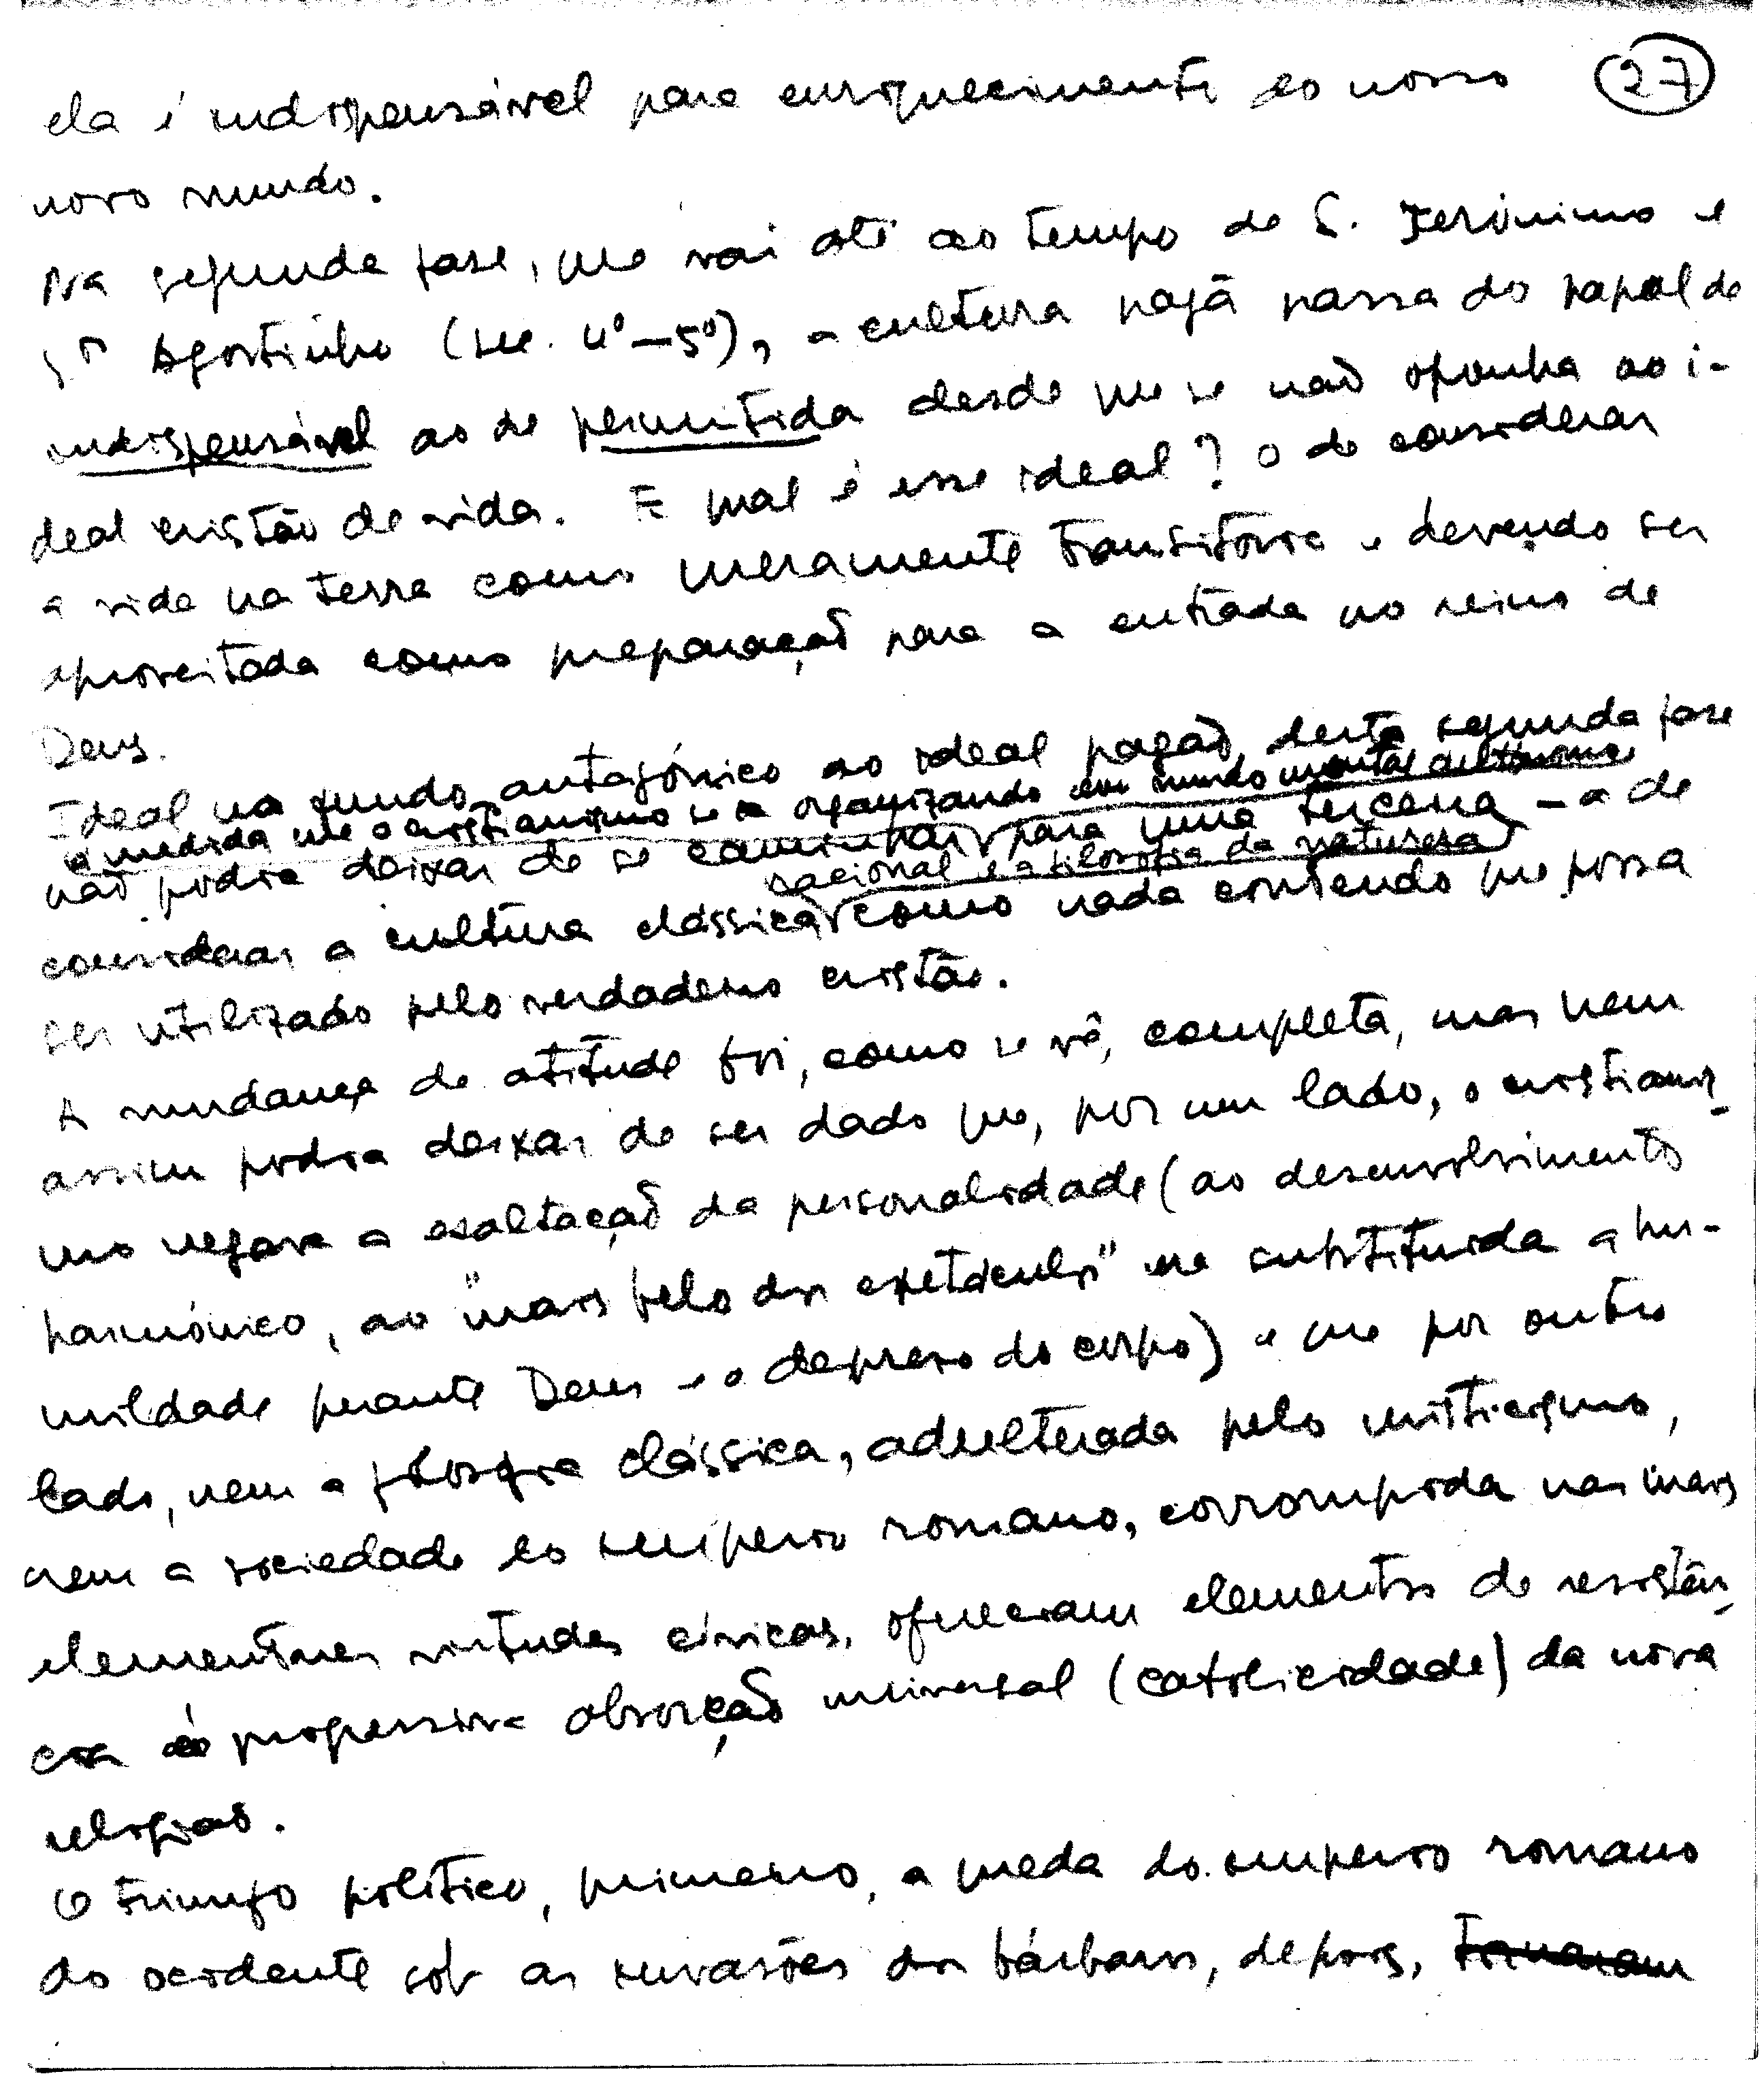 ela é indispensável para enriquecimento do nosso (27)
novo mundo.
Na segunda fase, que vai até ao tempo de S. Jerónimo e
Sto Agostinho (sec. 4º-5º), a cultura pagã passa do papel de
indispensável ao de permitida desde que se não oponha ao i-
deal cristão de vida. E qual é esse ideal? O de considerar
a vida na terra como meramente transitória e devendo ser
aproveitada como preparação para a entrada no reino de
Deus.
Ideal no fundo antagónico ao ideal pagão, desta segunda fase
à medida que o cristianismo se ia organizando em mundo mental autónomo
não podia deixar de se caminhar para uma terceira - a de
racional e a filosofia da natureza
considerar a cultura clássica como nada contendo que possa
ser utilizado pelo verdadeiro cristão.
A mudança de atitude foi, como se vê, completa, mas nem
assim podia deixar de ser dado que, por um lado, o cristianis-
mo negava a exaltação da personalidade (ao desenvolvimento
harmónico, ao "mais belo dos espetáculos" era substituída a hu-
mildade perante Deus e o desprezo do corpo) e que por outro
lado, nem a filosofia clássica, adulterada pelo misticismo,
nem a sociedade do império romano, corrompida nas mais
elementares virtudes cívicas, ofereciam elementos de resistên-
cia à progressiva absorção universal (catolicidade) da nova
religião.
O triunfo político, primeiro, a queda do império romano
do ocidente sob as invasões dos bárbaros, depois, tornaram